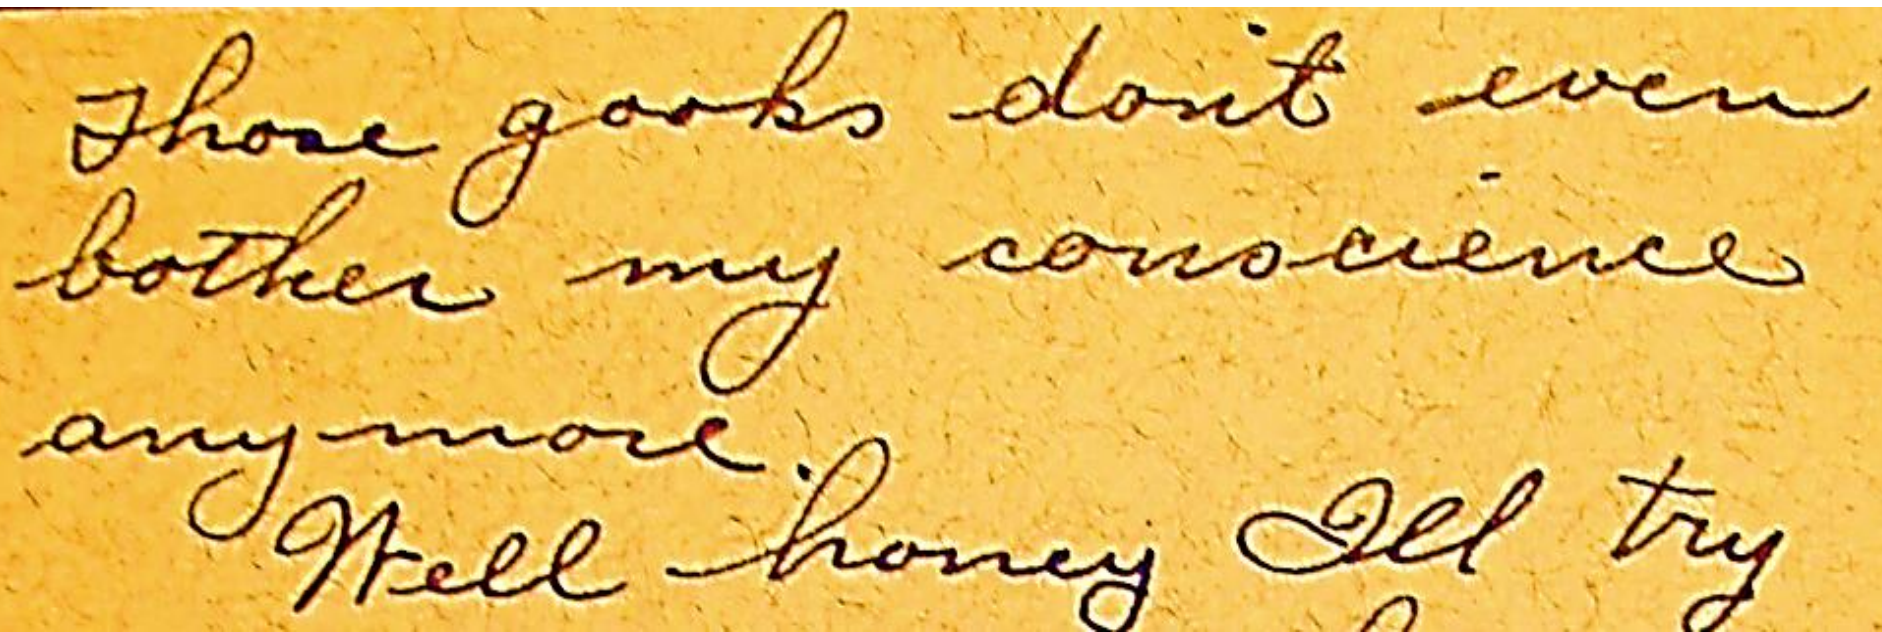 Those gooks don't even
bother my conscience
anymore.
Well honey I'll try